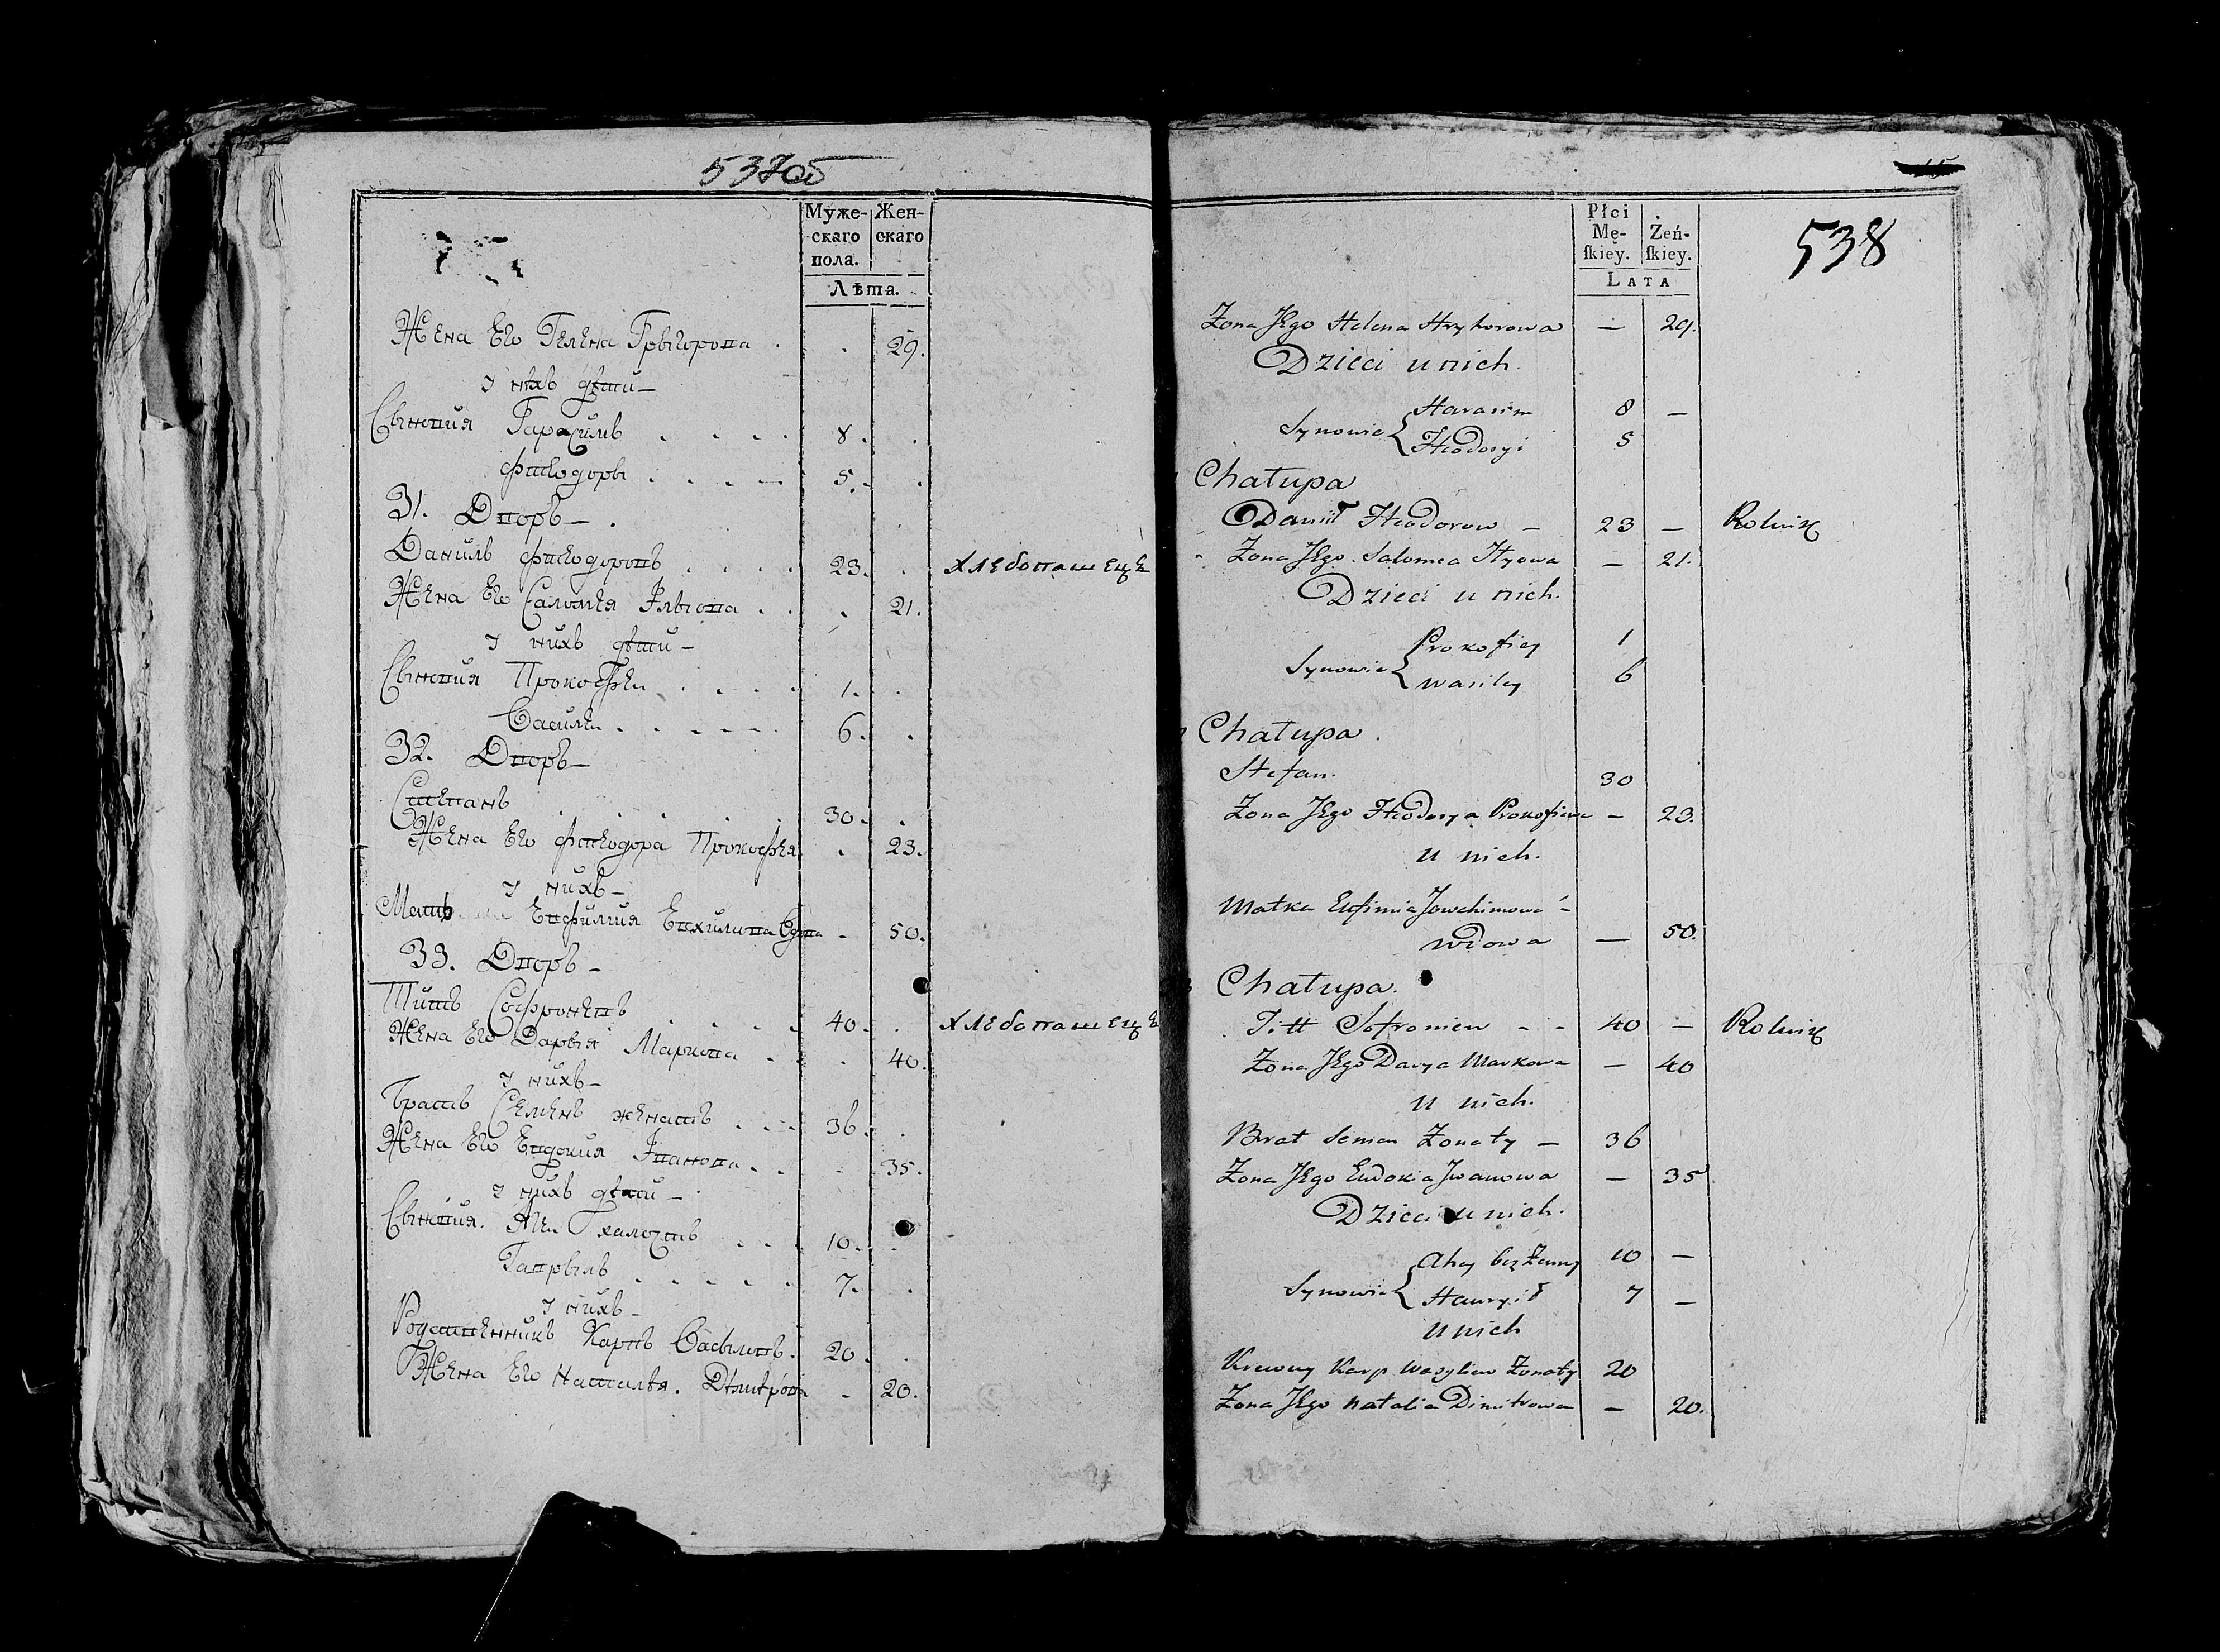 537об
Муже-
скаго
пола.
Жен-
скаго
Лѣта.
Жена Его Гелена Грыгорова . . 29.
У нихъ дѣти —
Сыновия Гарасимъ . . . . 8. .
Фтеодоръ . . . . 5. .
31. Дворъ — .
Данилъ Фтеодоровъ . . . . 23. . Хлебопашецъ
Жена Его Саломея Ільюва . . . 21.
У нихъ дѣти —
Сыновия Прокофей . . . . 1. .
Василей . . . . . 6. .
32. Дворъ —
Степанъ . . . . 30. .
Жена Его Фтеодора Прокофея . 23.
У нихъ —
Мать Евфимия Вдова - 50.
33. Дворъ —
Титъ Софроневъ . . . . 40. . Хлебопашецъ
Жена Его Дарья Маркова . . . 40.
У нихъ —
Братъ Семенъ женатъ . . . 36. .
Жена Его Евдокия Іванова . . - 35.
У нихъ дѣти —
Сыновия. халостъ . . . 10. .
Гаврылъ . . . . . 7. .
У нихъ —
Родственникъ Карпъ Васылевъ. 20. .
Жена Его Наталья. Дмитрова - 20.
Płci
Mę-
ſkiey.
Żeń-
ſkiey.
LATA
538
Żona Jego Helena Hryhorowa — 29.
Dzieci u nich.
Synowie Harasim 8 —
Fteodosyi 5
Chałupa
Danił Fteodorow — 23 — Rolnik
Żona Jego Salomea Ityowa — 21.
Dzieci u nich.
Synowie Prokofiey 1
Wasiley 6
Chałupa.
Stefan. 30
Żona Jego Fteodosya Prokofiewa — 23.
u nich.
Matka Eufimia Jowchimowa —
wdowa — 50.
Chałupa.
Titt Sofroniew - - 40 — Rolnik
Żona Jego Darya Markowa — 40
u nich.
Brat Semen Żonaty — 36
Żona Jego Eudokia Jwanowa — 35
Dzieci u nich.
Synowie bez Żenny 10 —
Hawrył 7 —
u nich
Krewny Karp Wasyliew Żonaty 20
Żona Jego Natalia Dimitrowa — 20.